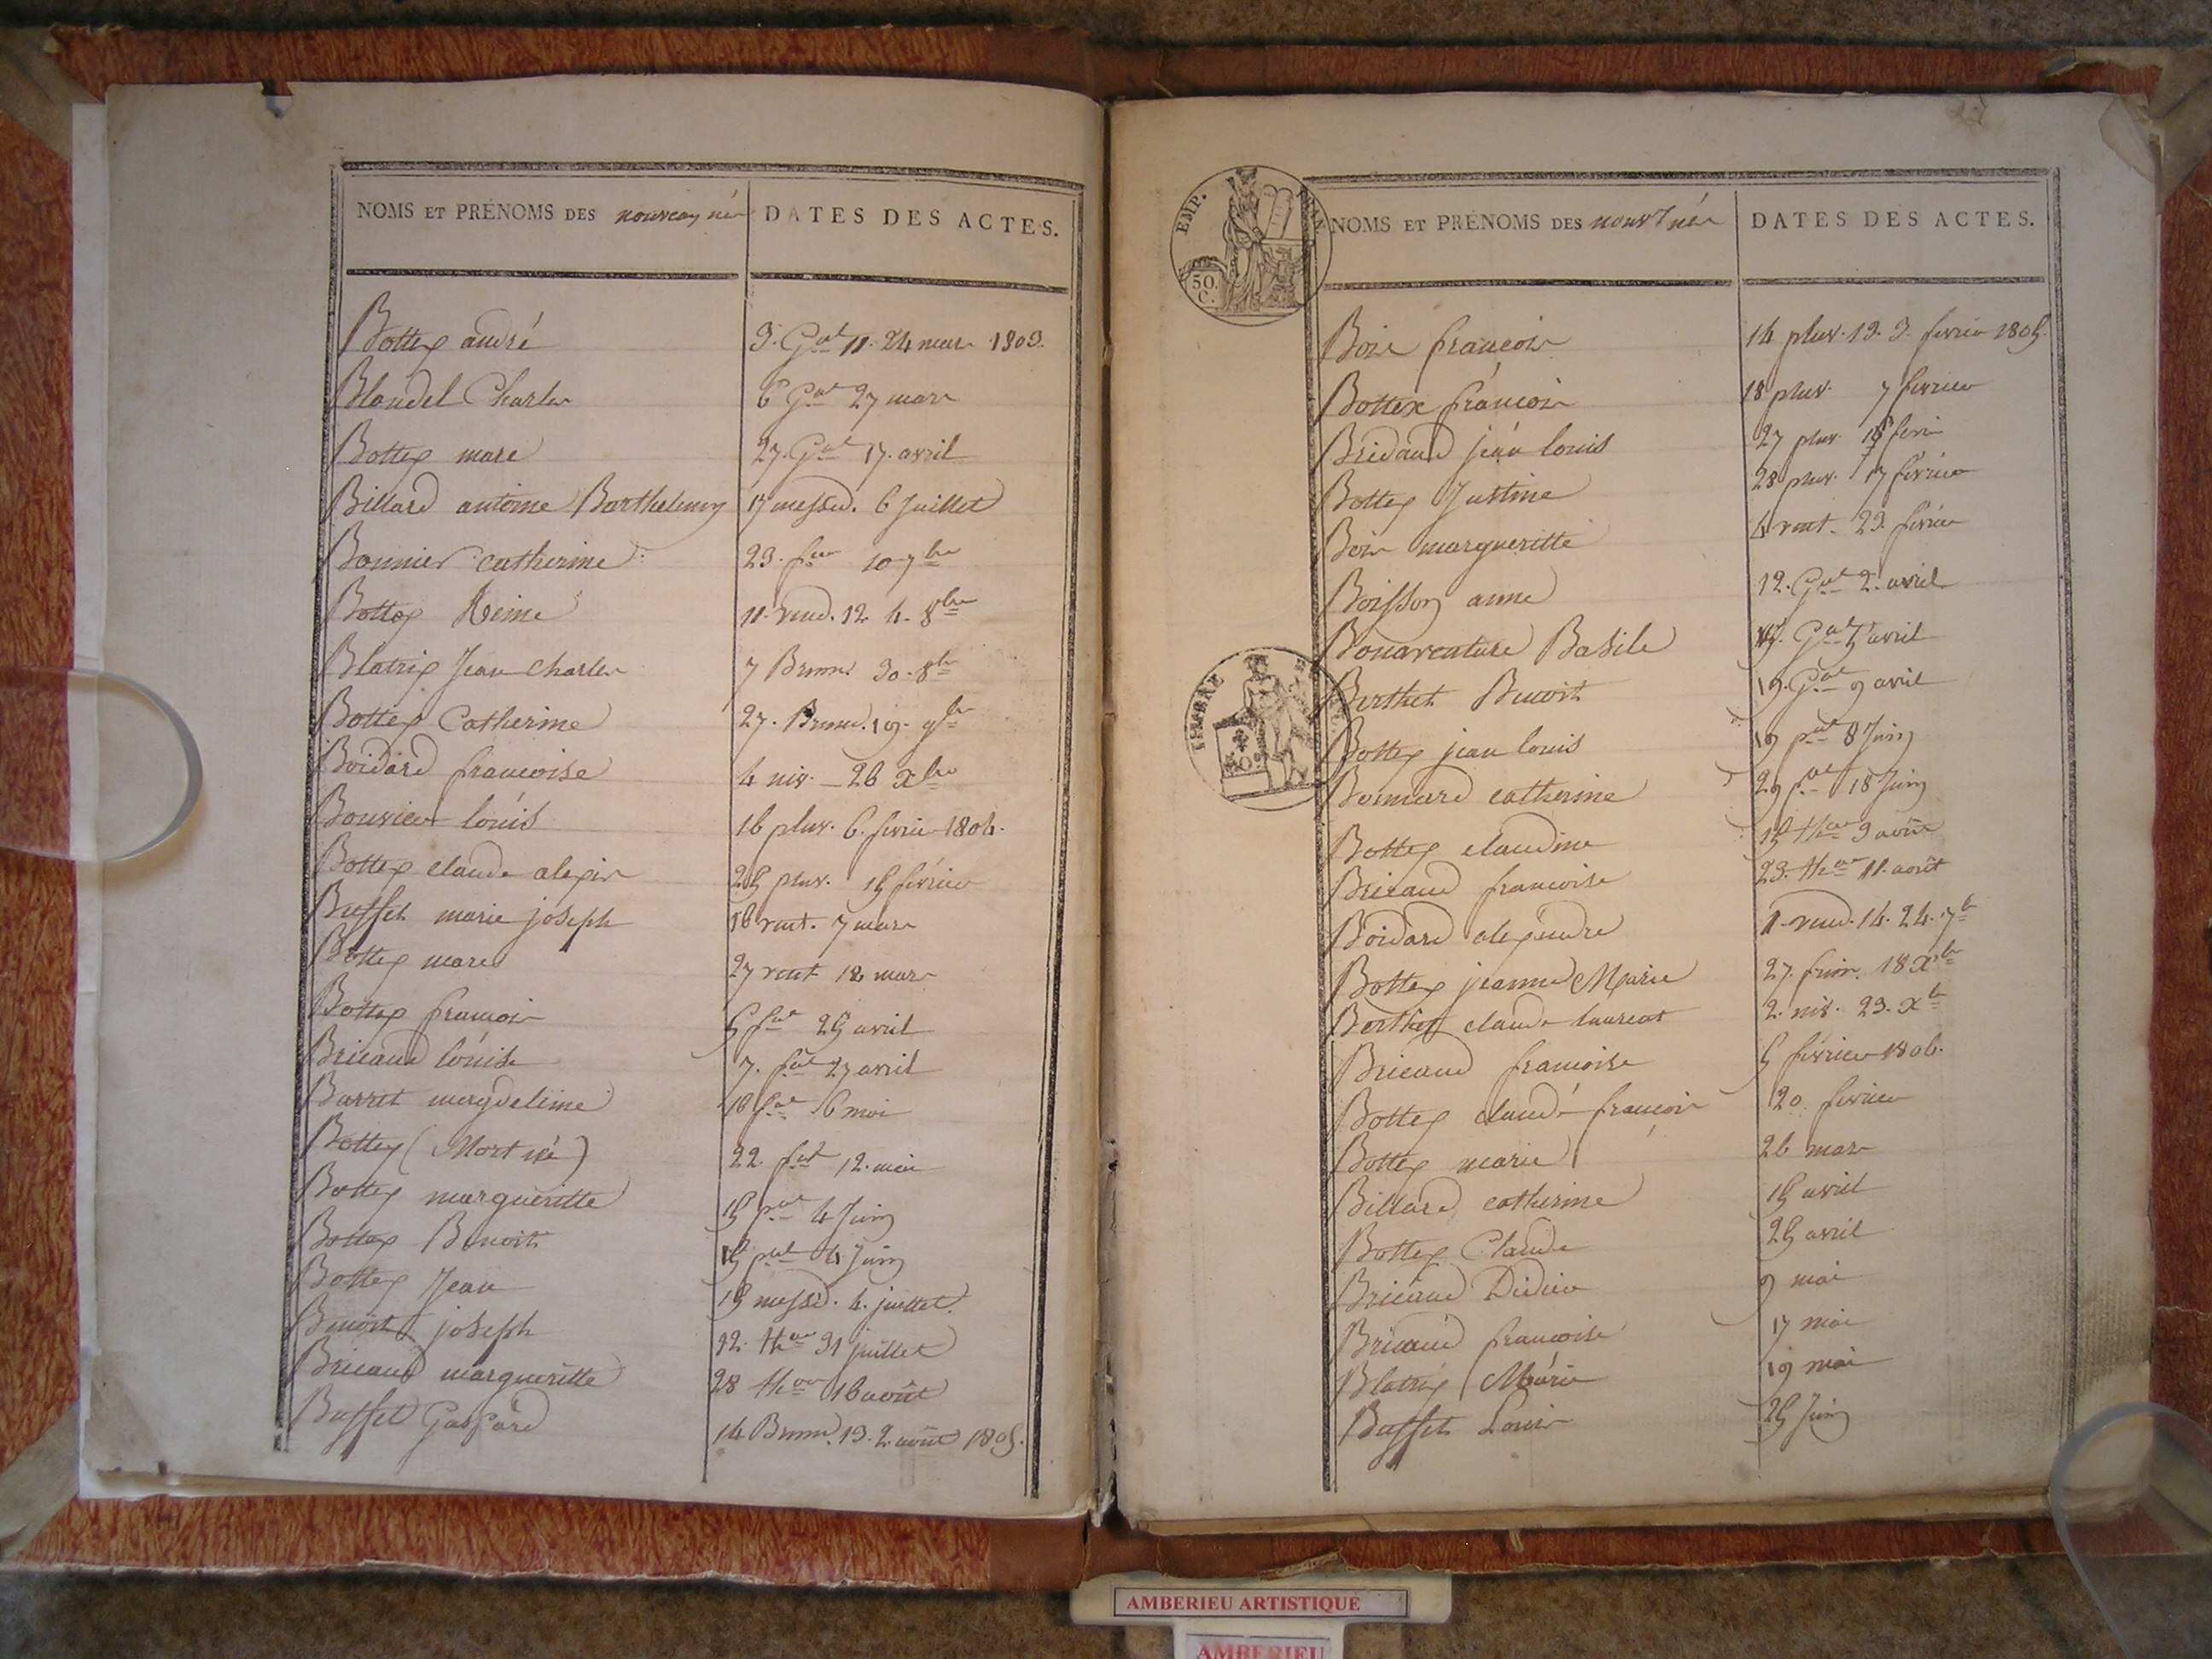 NOMS ET PRÉNOMS DES nouveaux nés DATES DES ACTES.
Bottex andré 3. G.al 11. 24 mars 1803.
Blondel Charles 6 G.al 27 mars
Bottex marc 27. G.al 17. avril
Billard antoine Barthelemy 17 messid. 6 Juillet
Bonnier catherine 23. f.or 10 7bre
Bottex Reine 11. vend. 12 4. 8bre
Blatrix Jean charles 7 Brum. 30. 8bre
Bottex Catherine 27. Brum. 19. 9bre
Boidard francoise 4 niv. 26 Xbre
Bouvier louis 16 pluv. 6. fevrier 1804.
Bottex claude alexis 25 pluv. 15 février
Buffet marie joseph 16 vent. 7 mars
Bottex marc 27 vent 18 mars
Bottex francois 5 f.al 25 avril
Bricaud louise 7. f.al 27 avril
Barret magdeleine 16 f.al 6 mai
Bottex (Mort né) 22. f.al 12. mai
Bottex margueritte 15 p.al 4 Juin
Bottex Benoit 15 p.al 4 Juin
Bottex Jean 15 messid. 4. juillet.
Benoit joseph 12. th.or 31 juillet
Bricaud margueritte 28 th.or 16 août
Buffet Gaspard 14 Brum. 13. 2. août 1805.
EMP.
50. C.
NOMS ET PRÉNOMS DES nouv.x nés DATES DES ACTES.
Bois francois 14 pluv. 13. 3. fevrier 1805.
Bottex francois 18 pluv. 7 fevrier
Bricaud jean louis 27 pluv. 16 fevri
Bottex Justine 28 pluv. 17 février
Bois margueritte 4 vent. 23. fevrier
Boisson anne 12. G.al 2. avril
Bonaventure Basile 17. G.al 7 avril
Berthet Benoit 19. G.al 9 avril
TIMBRE
Bottex jean louis 19 p.al 8 Juin
Bonnard catherine 29 p.al 18 Juin
Bottex claudine 15 th.or 3 août
Bricaud francoise 23. th.or 11. août
Boidard alexandre 1. vend. 14. 24. 7bre
Bottex jeanne Marie 27. frim. 18 Xbre
Berthet claude laurent 2. niv. 23. Xbre
Bricaud francoise 5 février 1806.
Bottex claude francois 20 fevrier
Bottex marie 26 mars
Billard catherine 15 avril
Bottex Claude 25 avril
Bricaud Didier 9 mai
Bricaud francoise 17 mai
Blatrix Marie 19 mai
Buffet Louis 25 Juin
AMBERIEU ARTISTIQUE
AMBERIEU